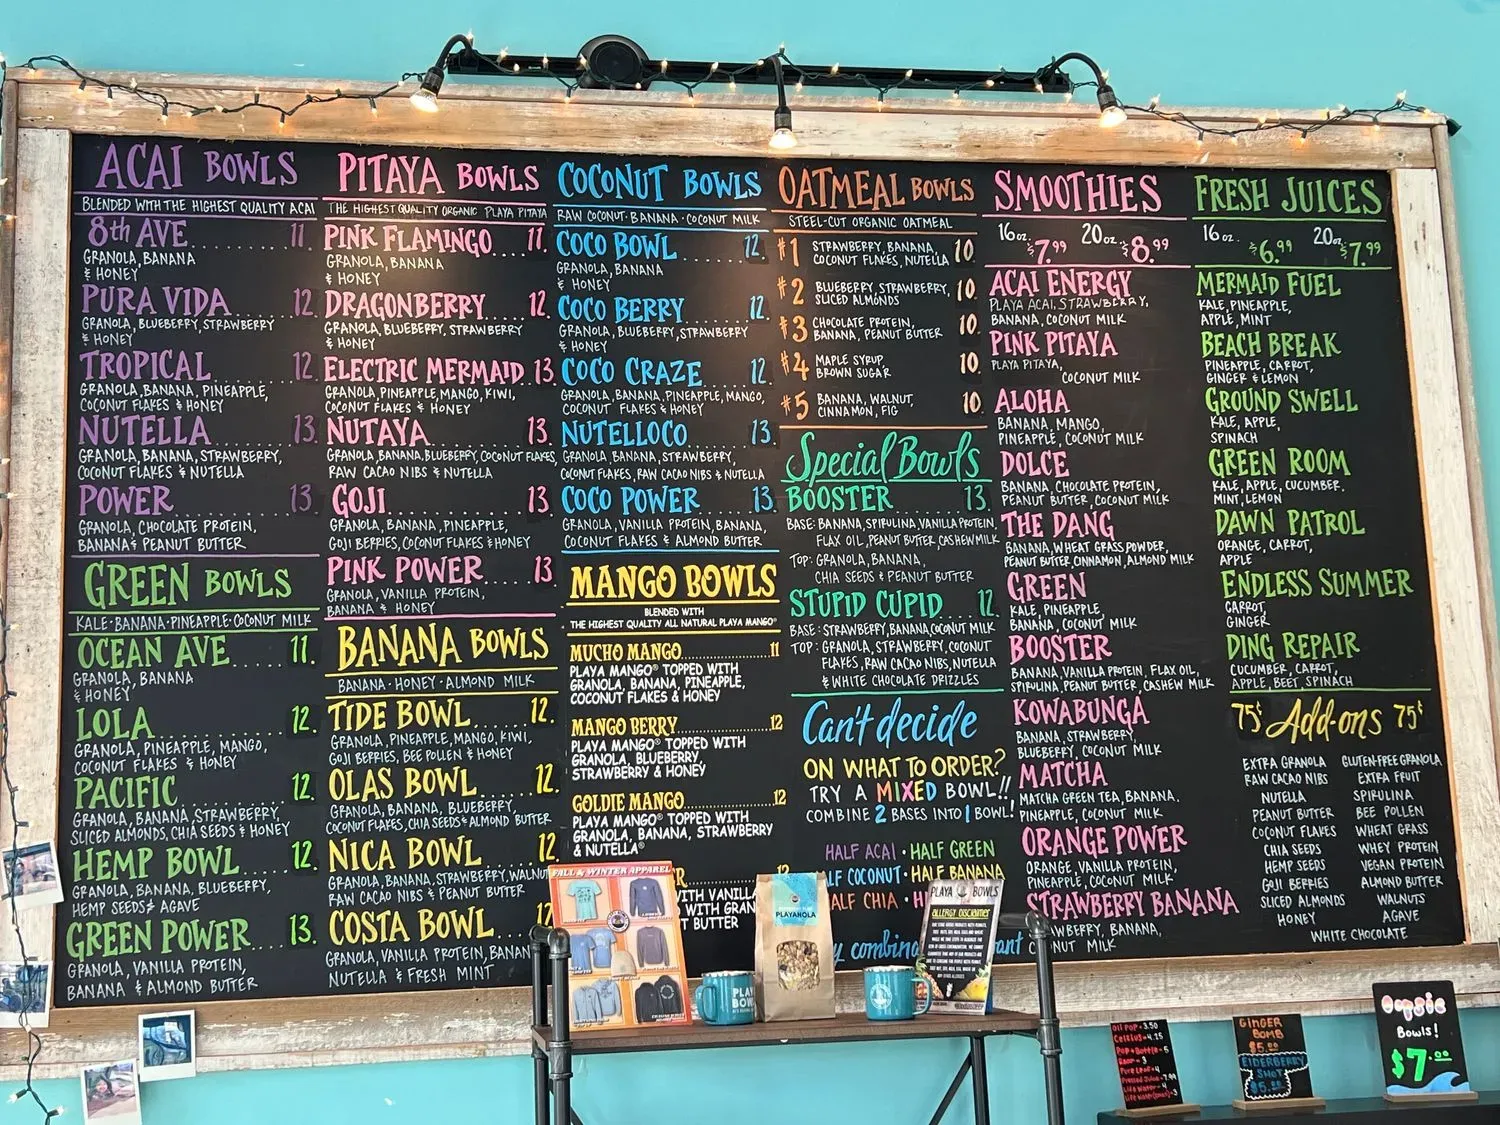 ACAI BOWLS
BLENDED WITH THE HIGHEST QUALITY ACAI
8th AVE 11.
GRANOLA, BANANA
& HONEY
PURA VIDA 12.
GRANOLA, BLUEBERRY, STRAWBERRY
& HONEY
TROPICAL 12.
GRANOLA, BANANA, PINEAPPLE,
COCONUT FLAKES & HONEY
NUTELLA 13.
GRANOLA, BANANA, STRAWBERRY,
COCONUT FLAKES & NUTELLA
POWER 13.
GRANOLA, CHOCOLATE PROTEIN,
BANANA & PEANUT BUTTER
GREEN BOWLS
KALE · BANANA · PINEAPPLE · COCONUT MILK
OCEAN AVE 11.
GRANOLA, BANANA
& HONEY
LOLA 12.
GRANOLA, PINEAPPLE, MANGO,
COCONUT FLAKES & HONEY
PACIFIC 12.
GRANOLA, BANANA, STRAWBERRY,
SLICED ALMONDS, CHIA SEEDS & HONEY
HEMP BOWL 12.
GRANOLA, BANANA, BLUEBERRY,
HEMP SEEDS & AGAVE
GREEN POWER 13.
GRANOLA, VANILLA PROTEIN,
BANANA & ALMOND BUTTER
PITAYA BOWLS
THE HIGHEST QUALITY ORGANIC PLAYA PITAYA
PINK FLAMINGO 11.
GRANOLA, BANANA
& HONEY
DRAGONBERRY 12.
GRANOLA, BLUEBERRY, STRAWBERRY
& HONEY
ELECTRIC MERMAID 13.
GRANOLA, PINEAPPLE, MANGO, KIWI,
COCONUT FLAKES & HONEY
NUTAYA 13.
GRANOLA, BANANA, BLUEBERRY, COCONUT FLAKES,
RAW CACAO NIBS & NUTELLA
GOJI 13.
GRANOLA, BANANA, PINEAPPLE,
GOJI BERRIES, COCONUT FLAKES & HONEY
PINK POWER 13.
GRANOLA, VANILLA PROTEIN,
BANANA & HONEY
BANANA BOWLS
BANANA · HONEY · ALMOND MILK
TIDE BOWL 12.
GRANOLA, PINEAPPLE, MANGO, KIWI,
GOJI BERRIES, BEE POLLEN & HONEY
OLAS BOWL 12.
GRANOLA, BANANA, BLUEBERRY,
COCONUT FLAKES, CHIA SEEDS & ALMOND BUTTER
NICA BOWL 12.
GRANOLA, BANANA, STRAWBERRY, WALNUT
RAW CACAO NIBS & PEANUT BUTTER
COSTA BOWL 12
GRANOLA, VANILLA PROTEIN, BANAN
NUTELLA & FRESH MINT
COCONUT BOWLS
RAW COCONUT · BANANA · COCONUT MILK
COCO BOWL 12.
GRANOLA, BANANA
& HONEY
COCO BERRY 12.
GRANOLA, BLUEBERRY, STRAWBERRY
& HONEY
COCO CRAZE 12.
GRANOLA, BANANA, PINEAPPLE, MANGO,
COCONUT FLAKES & HONEY
NUTELLOCO 13.
GRANOLA, BANANA, STRAWBERRY,
COCONUT FLAKES, RAW CACAO NIBS & NUTELLA
COCO POWER 13.
GRANOLA, VANILLA PROTEIN, BANANA,
COCONUT FLAKES & ALMOND BUTTER
MANGO BOWLS
BLENDED WITH
THE HIGHEST QUALITY ALL NATURAL PLAYA MANGO®
MUCHO MANGO 11
PLAYA MANGO® TOPPED WITH
GRANOLA, BANANA, PINEAPPLE,
COCONUT FLAKES & HONEY
MANGO BERRY 12
PLAYA MANGO® TOPPED WITH
GRANOLA, BLUEBERRY,
STRAWBERRY & HONEY
GOLDIE MANGO 12
PLAYA MANGO® TOPPED WITH
GRANOLA, BANANA, STRAWBERRY
& NUTELLA®
WITH VANILLA
WITH GRAN
T BUTTER
OATMEAL BOWLS
STEEL-CUT ORGANIC OATMEAL
#1 STRAWBERRY, BANANA,
COCONUT FLAKES, NUTELLA 10.
#2 BLUEBERRY, STRAWBERRY,
SLICED ALMONDS 10.
#3 CHOCOLATE PROTEIN,
BANANA, PEANUT BUTTER 10.
#4 MAPLE SYRUP
BROWN SUGAR 10.
#5 BANANA, WALNUT,
CINNAMON, FIG 10.
Special Bowls
BOOSTER 13.
BASE: BANANA, SPIRULINA, VANILLA PROTEIN,
FLAX OIL, PEANUT BUTTER, CASHEW MILK
TOP: GRANOLA, BANANA,
CHIA SEEDS & PEANUT BUTTER
STUPID CUPID 12.
BASE: STRAWBERRY, BANANA, COCONUT MILK
TOP: GRANOLA, STRAWBERRY, COCONUT
FLAKES, RAW CACAO NIBS, NUTELLA
& WHITE CHOCOLATE DRIZZLES
Can't decide
ON WHAT TO ORDER?
TRY A MIXED BOWL!!
COMBINE 2 BASES INTO 1 BOWL!
HALF ACAI · HALF GREEN
LF COCONUT · HALF BANANA
ALF CHIA · H
y combina
SMOOTHIES
16oz. $7.99 20oz. $8.99
ACAI ENERGY
PLAYA ACAI, STRAWBERRY,
BANANA, COCONUT MILK
PINK PITAYA
PLAYA PITAYA,
COCONUT MILK
ALOHA
BANANA, MANGO,
PINEAPPLE, COCONUT MILK
DOLCE
BANANA, CHOCOLATE PROTEIN,
PEANUT BUTTER, COCONUT MILK
THE DANG
BANANA, WHEAT GRASS POWDER,
PEANUT BUTTER, CINNAMON, ALMOND MILK
GREEN
KALE, PINEAPPLE,
BANANA, COCONUT MILK
BOOSTER
BANANA, VANILLA PROTEIN, FLAX OIL,
SPIRULINA, PEANUT BUTTER, CASHEW MILK
KOWABUNGA
BANANA, STRAWBERRY,
BLUEBERRY, COCONUT MILK
MATCHA
MATCHA GREEN TEA, BANANA,
PINEAPPLE, COCONUT MILK
ORANGE POWER
ORANGE, VANILLA PROTEIN,
PINEAPPLE, COCONUT MILK
STRAWBERRY BANANA
WBERRY, BANANA,
NUT MILK
FRESH JUICES
16oz. $6.99 20oz $7.99
MERMAID FUEL
KALE, PINEAPPLE,
APPLE, MINT
BEACH BREAK
PINEAPPLE, CARROT,
GINGER & LEMON
GROUND SWELL
KALE, APPLE,
SPINACH
GREEN ROOM
KALE, APPLE, CUCUMBER,
MINT, LEMON
DAWN PATROL
ORANGE, CARROT,
APPLE
ENDLESS SUMMER
CARROT,
GINGER
DING REPAIR
CUCUMBER, CARROT,
APPLE, BEET, SPINACH
75¢ Add-ons 75¢
EXTRA GRANOLA
RAW CACAO NIBS
NUTELLA
PEANUT BUTTER
COCONUT FLAKES
CHIA SEEDS
HEMP SEEDS
GOJI BERRIES
SLICED ALMONDS
HONEY
GLUTEN-FREE GRANOLA
EXTRA FRUIT
SPIRULINA
BEE POLLEN
WHEAT GRASS
WHEY PROTEIN
VEGAN PROTEIN
ALMOND BUTTER
WALNUTS
AGAVE
WHITE CHOCOLATE
FALL & WINTER APPAREL
PLAYANOLA
PLAYA BOWLS
ALLERGY DISCLAIMER
PLAY
BOW
Oil Pop - 3.50
Celsius - 4.25
GINGER
BOMB
$5.00
ELDERBERRY
SHOT
$5.00
Bowls!
$7.00